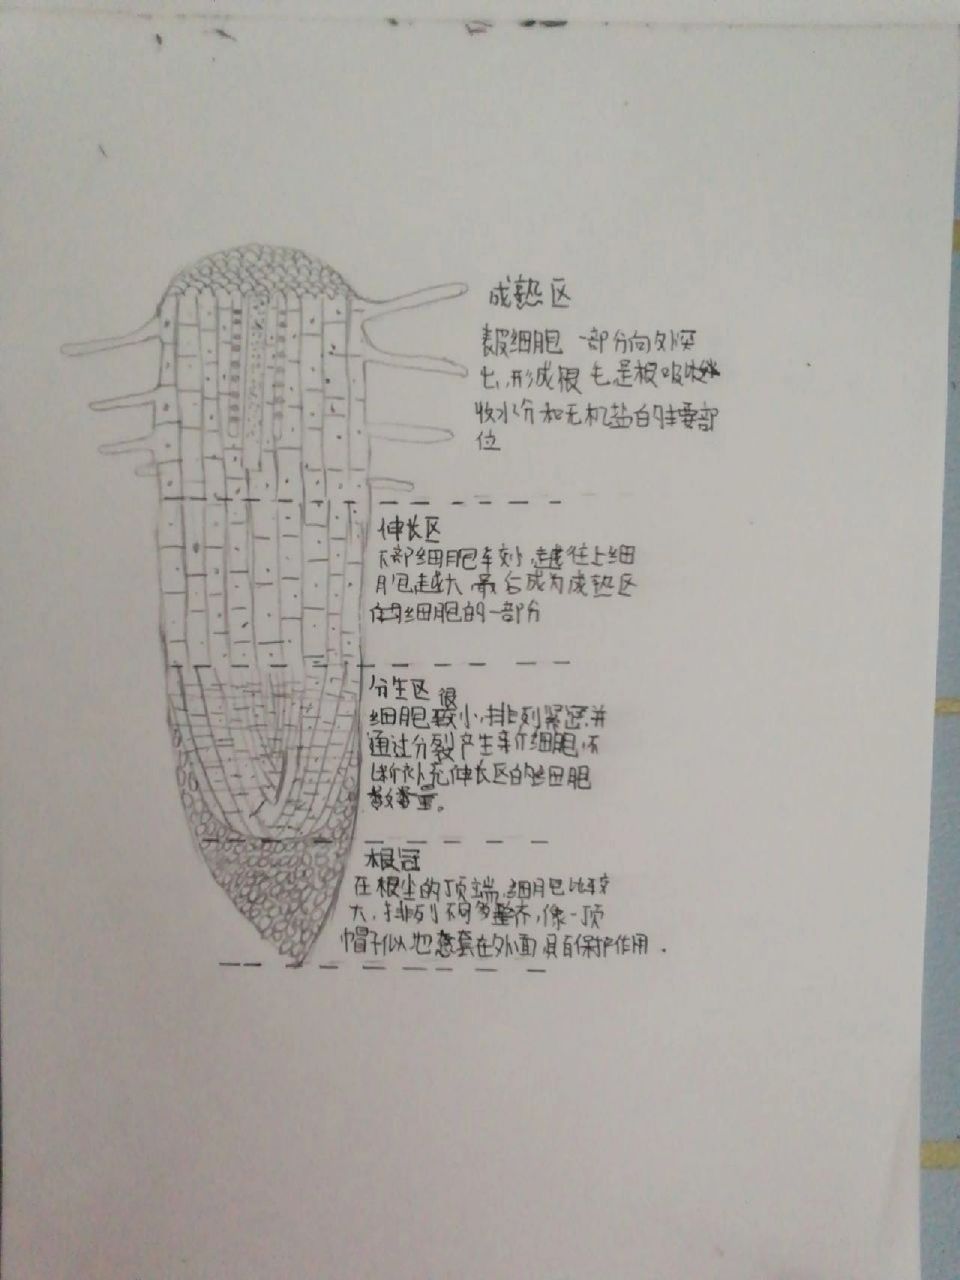 成熟区
表皮细胞一部分向外突
出,形成根毛是根吸
收水分和无机盐的主要部
位
伸长区
下部细胞较小,越往上细
胞越大 最后成为成熟区
细胞的一部分
分生区
细胞很小,排列紧密并
通过分裂产生新细胞,不
断补充伸长区的细胞
数量。
根冠
在根尖的顶端,细胞比较
大,排列不够整齐,像一顶
帽子似地套在外面 具有保护作用.